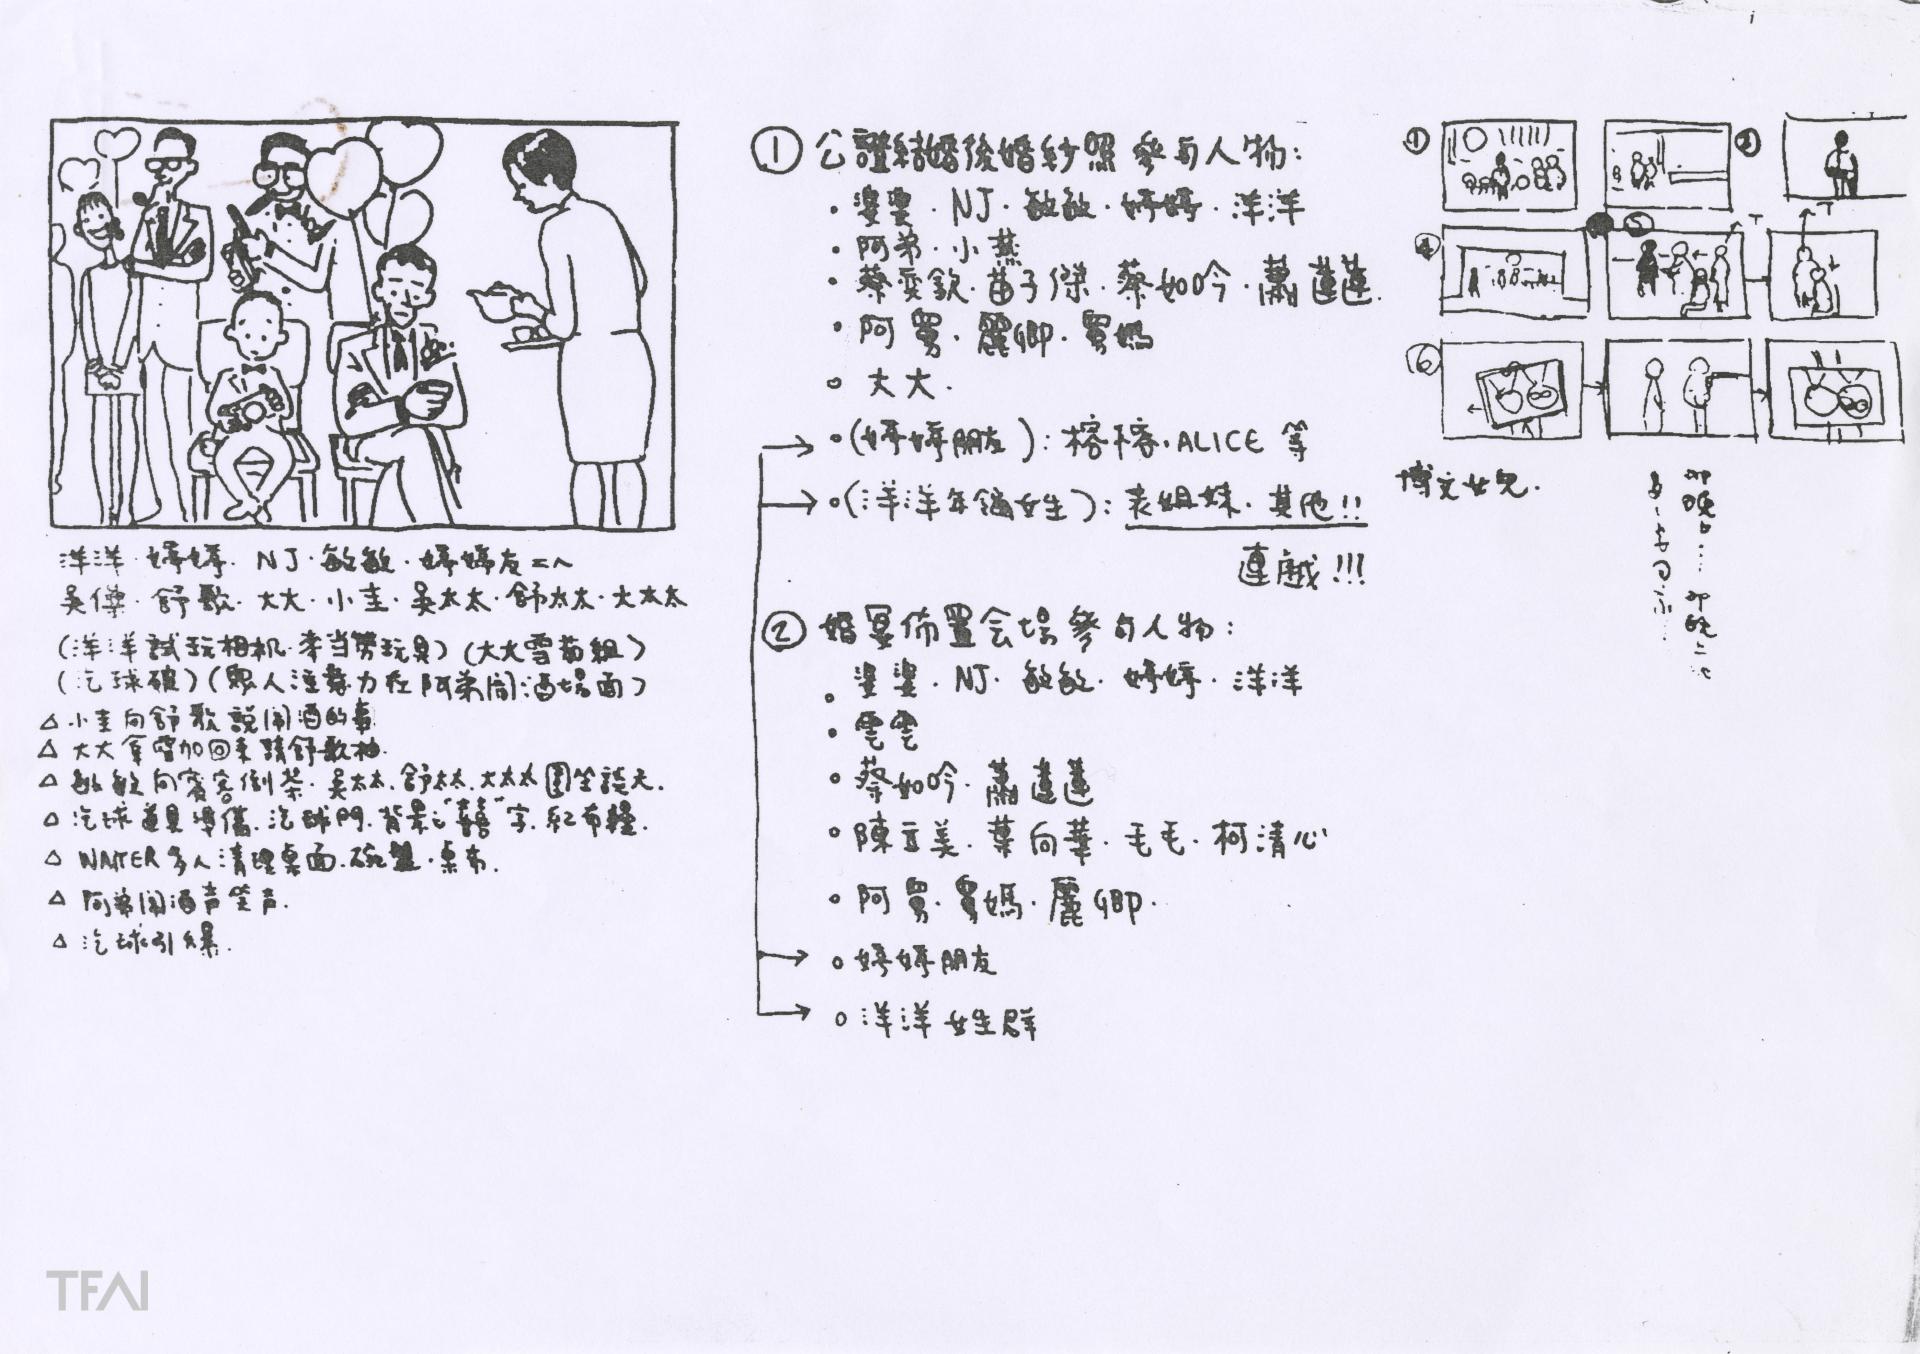 洋洋·婷婷·NJ·敏敏·婷婷友二人
吳傳·舒歌·大大·小圭·吳太太·舒太太·大太太
(洋洋試玩相机·李当勞玩具)(大大雪茄組)
(汽球破)(眾人注意力在阿弟鬧酒場面)
△ 小圭向舒歌說鬧酒的事
△ 大大拿雪加回來請舒歌抽.
△ 敏敏向賓客倒茶·吳太太.舒太太.大太太圍坐談天.
△ 汽球道具準備.汽球門.背景之"囍"字.紅布幔.
△ WAITER多人清理桌面.碗盤·桌布.
△ 阿弟鬧酒声笑声.
△ 汽球引爆.
① 公證結婚後婚紗照參与人物:
· 婆婆·NJ·敏敏·婷婷·洋洋
· 阿弟·小燕
· 蔡奕欽·苗子傑·蔡如吟·蕭蓮蓮.
· 阿舅·麗卿·舅媽
· 大大.
→ (婷婷朋友):榕榕·ALICE 等
→ (洋洋年齡女生):表姐妹·其他!!
連戲!!!
② 婚宴佈置会場參与人物:
· 婆婆·NJ·敏敏·婷婷·洋洋
· 雲雲
· 蔡如吟·蕭蓮蓮
· 陳立美·葉向華·毛毛·柯清心
· 阿舅·舅媽·麗卿·
→ 婷婷朋友
→ 洋洋女生群
①
②
T
④
⑤
T
⑥
博文女兒.
TFAI